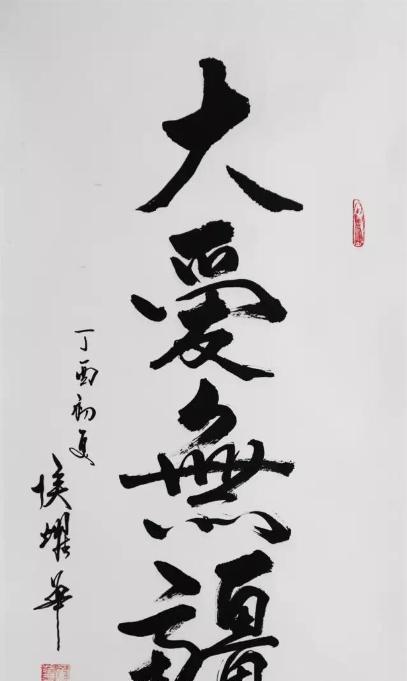 大愛無疆
丁酉初夏
侯耀华